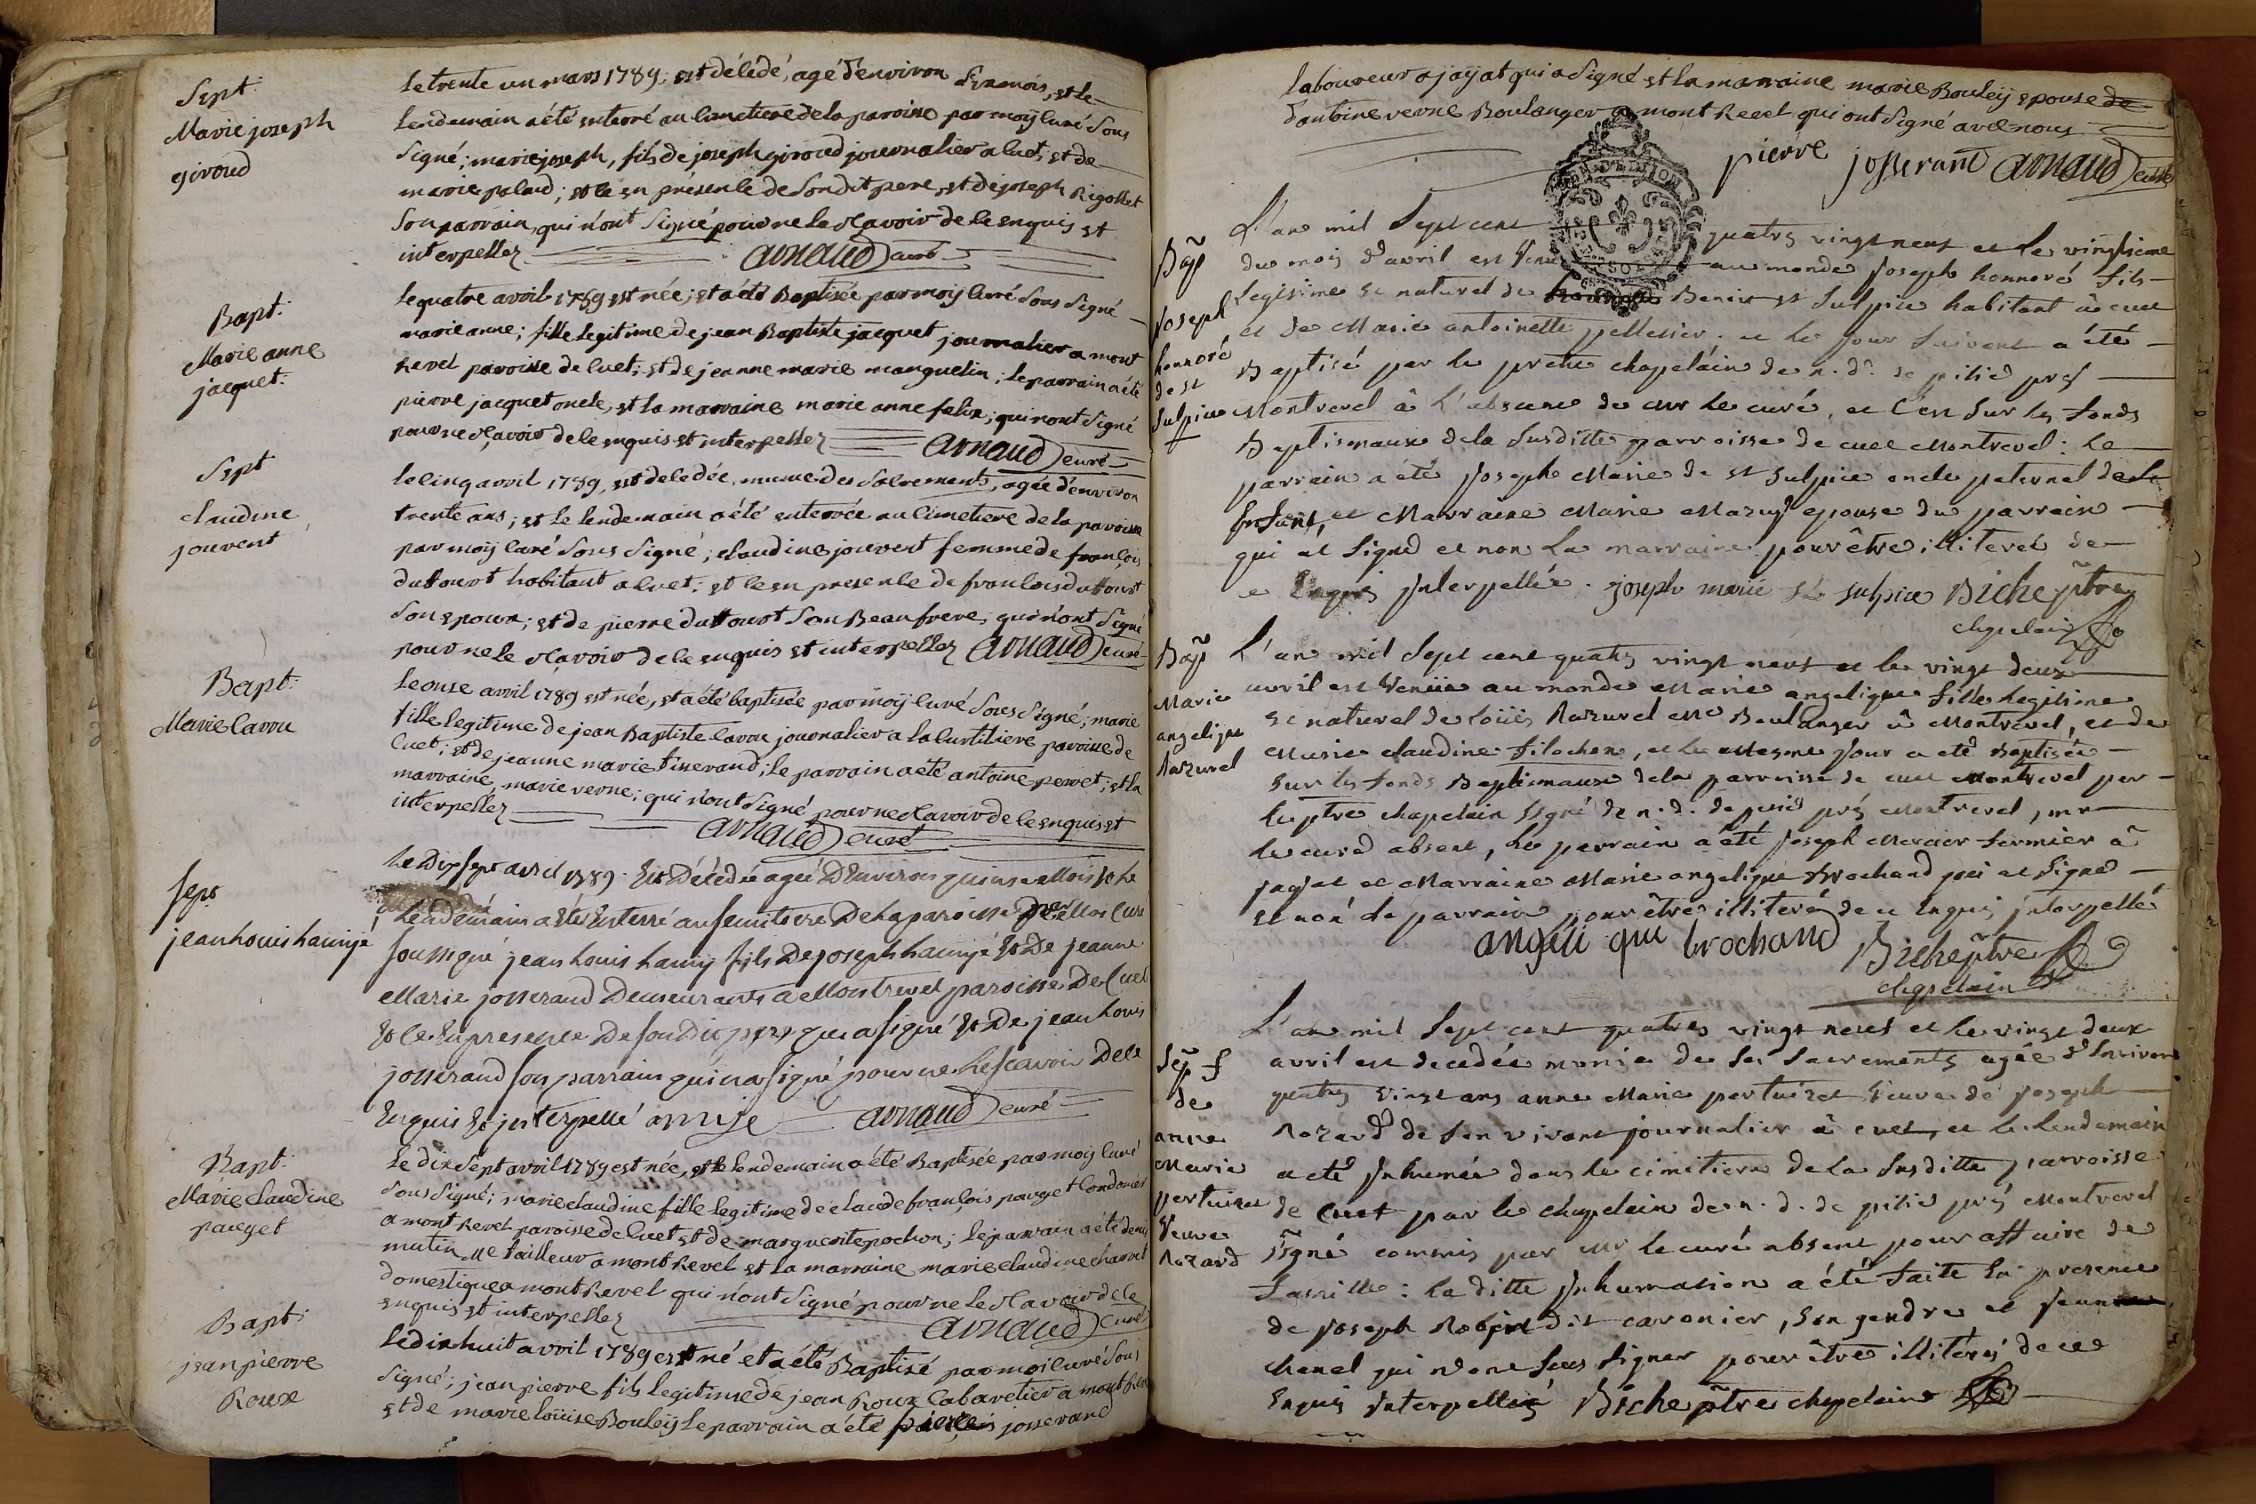 Sept:
Marie joseph
giroud
le trente un mars 1789, est décédé, agé d'environ six mois, et le
lendemain a été enterré au cimetiere de la paroisse par moy curé sous
signé; marie joseph, fils de joseph giroud journalier a cuet; et de
marie palaud; et ce en présence de son dit pere, et de joseph Rigollet
son parrain, qui n'ont signé pour ne le sçavoir de ce enquis et
interpellez arnaud curé
Bapt:
Marie anne
jacquet.
le quatre avril 1789 est née; et a été Baptisée par moy curé sous signé
marie anne; fille legitime de jean Baptiste jacquet journalier a mont
Revel paroisse de cuet; et de jeanne marie manguelin; le parrain a été
pierre jacquet oncle, et la marraine marie anne felix; qui n'ont signé
pour ne sçavoir de ce enquis et interpellez arnaud curé
Sept
claudine
jouvent
le cinq avril 1789, est décédée, munie des sacrements, agée d'environ
trente ans; et le lendemain a été enterrée au cimetiere de la paroisse
par moy curé sous signé; claudine jouvent femme de françois
duttourt habitant a cuet; et ce en presence de francois duttourt
son epoux; et de pierre duttourt son Beaufrere, qui n'ont signé
pour ne le sçavoir de ce enquis et interpellez arnaud curé
Bapt:
Marie Carru
le onse avril 1789 est née, et a été baptisée par moy curé sous signé; marie
fille legitime de jean Baptiste carru journalier a la curtiliere paroisse de
cuet; et de jeanne marie tisserand; le parrain a été antoine perret; et la
marraine, marie verne; qui n'ont signé pour ne sçavoir de ce enquis et
interpellez arnaud curé
Sept
jean Louis haunjé
Le Dix sept avril 1789. Est Décédé agé D'Environ quinse Mois Et Le
Lendemain a Eté Enterré au semitiere De La paroisse par Moi Curé
soussigné jean Louis fils De joseph haunjé Et De jeanne
Marie josserand Demeurants a Montrevel paroisse De Cuet
Et ce En presence De son Dit pere qui a signé Et De jean Louis
josserand son parrain qui n'a signé pour ne Le scavoir De ce
Enquis Et interpellé arnaud curé
Bapt:
Marie Claudine
pauget
Le dix sept avril 1789 est née, et le lendemain a été Baptisée par moy curé
sous signé; marie claudine fille legitime de claude françois pauget Cordonier
a mont Revel paroisse de cuet et de marguerite pochon; le parrain a été denis
mutin Me tailleur a mont Revel et la marraine marie claudine charvet
domestique a mont Revel qui n'ont signé pour ne le sçavoir de ce
enquis et interpellez arnaud curé
Bapt:
jean pierre
Roux
Le dix huit avril 1789 est né et a été Baptisé par moi curé sous
signé; jean pierre fils legitime de jean Roux Cabaretier a mont Revel
et de marie Loüise Bouley le parrain a été pierre josserand
laboureur a jayat qui a signé et la marraine marie Bouley epouse de
d'antoine verne Boulanger a mont Revel qui ont signé avec nous
pierre josserant arnaud curé
Bap
Joseph
honnoré
de st
Sulpice
L'an mil Sept cent quatre vingt neuf et le vingtieme
du mois d'avril est venu au monde Joseph honnoré fils
Legitime et naturel de Benoit st Sulpice habitant à cuet
et de Marie antoinette pellicier. et le jour suivant a été
Baptisé par le prêtre chapelain de n. d. de pitié pres
Montrevel à l'absence de mr le curé, et c'est sur les fonds
Baptismaux de la susditte parroisse de cuet Montrevel: le
parrain a été joseph Marie de st sulpice oncle paternel de
Enfant, et Marraine Marie Mazuy epouse du parrain
qui at signé et non la marraine pour être illiteré de
ce Enquis Interpellée. joseph marie st sulpice Biche ptre
chapelain
Bap
Marie
angelique
Razurel
L'an mil Sept cent quatre vingt neuf et le vingt deux
avril est venüe au monde Marie angelique fille legitime
et naturel de loüis Razurel me Boulanger à Montrevel, et de
Marie claudine filochon, et le mesme jour a eté Baptisée
sur les fonds Baptismaux de la parroisse de cuet Montrevel par
le ptre chapelain signé de n. d. de pitié prés Montrevel, mr
le curé absent, le parrain a été joseph Mercier fermier à
jayat et Marraine Marie angelique Brochand qui at signé
et non le parrain pour être illiteré de ce Enquis interpellé
angeli que brochand Biche ptre
chapelain
Sep f
de
anne
Marie
pertuiset
veuve
Rozard
L'an mil Sept cent quatre vingt neuf et le vingt deux
avril est decedée munie de ses sacrements agée d'Environ
quatre vingt ans anne Marie pertuiset veuve de joseph
Rozard de son vivant journalier à cuet, et le lendemain
a eté Inhumée dans le cimitiere de la susditte parroisse
de Cuet par le chapelain de n. d. de pitié près Montrevel
signé commis par mr le curé absent pour affaire de
famille: la ditte Inhumation a été faite En presence
de joseph Robin dit caronier, son gendre et
chanel qui n'ont sus signer pour être illiterés de ce
Enquis Interpellés Biche ptre chapelain